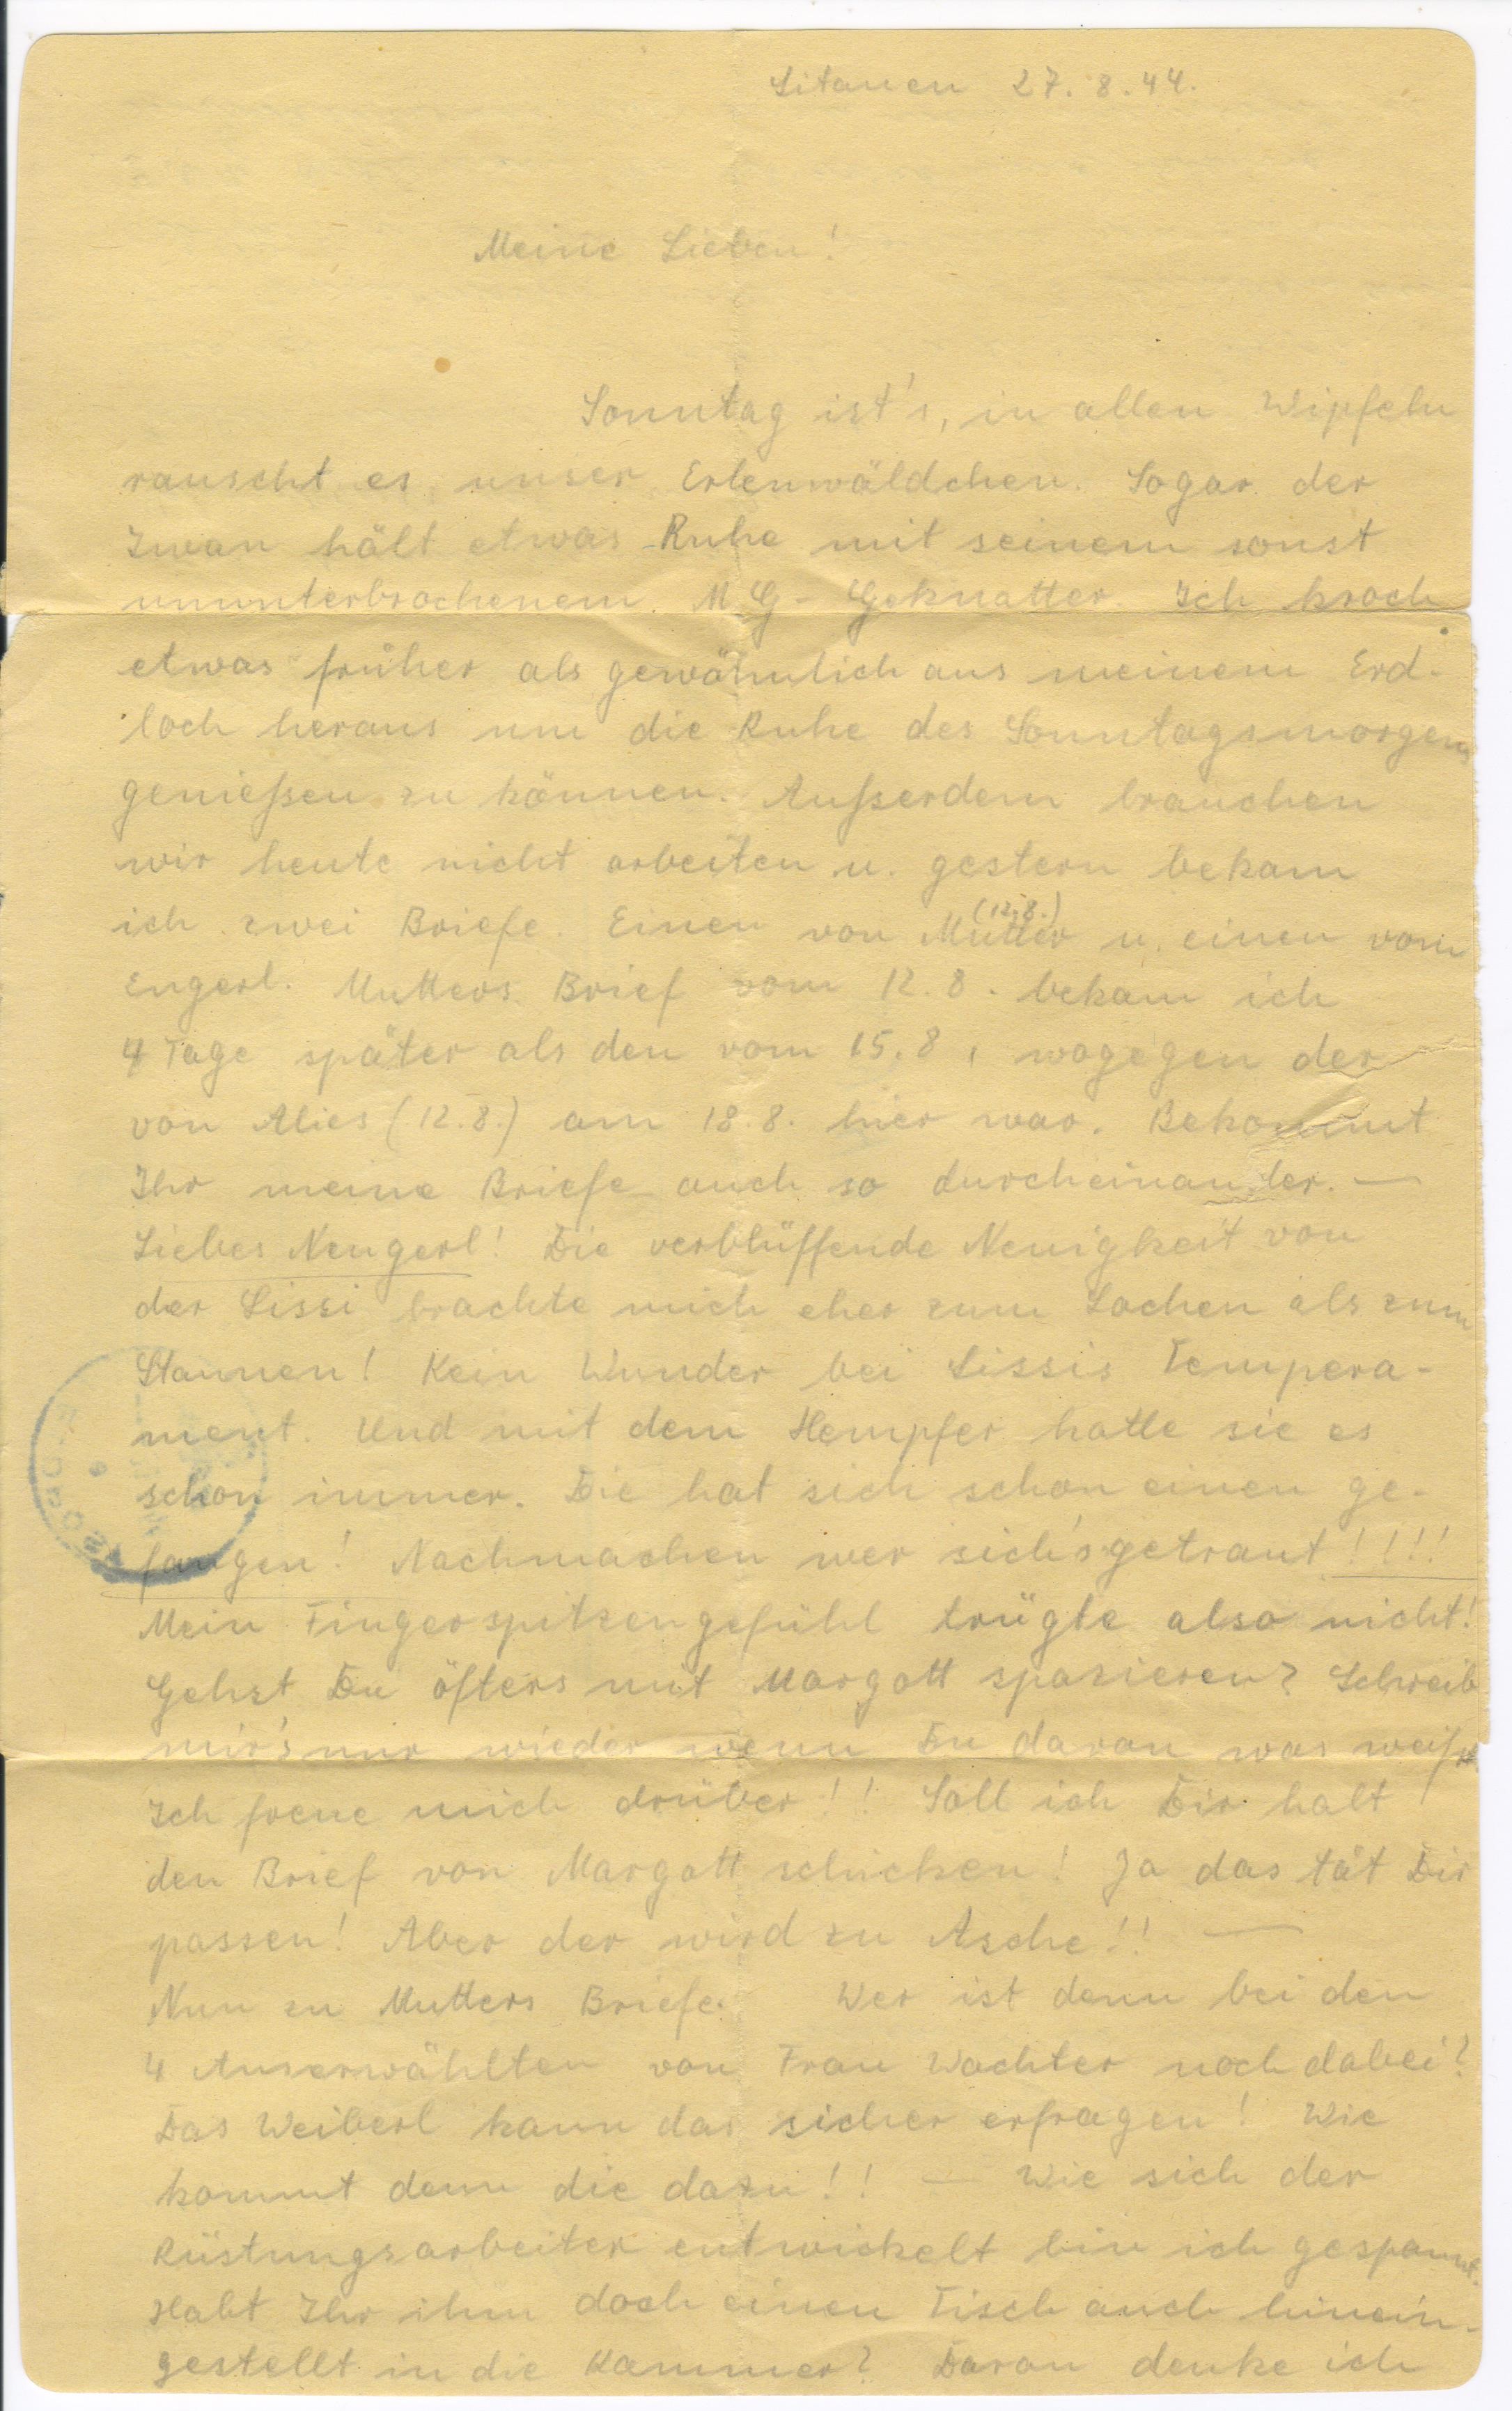 Litauen 27.8.44.
Meine Lieben!
Sonntag ist's, in allen Wipfeln
rauscht es unser Erlenwäldchen. Sogar der
Iwan hält etwas Ruhe mit seinem sonst
ununterbrochenem MG-Geknatter. Ich kroch
etwas früher als gewöhnlich aus meinem Erd-
loch heraus um die Ruhe des Sonntagsmorgens
genießen zu können. Außerdem brauchen
wir heute nicht arbeiten u. gestern bekam
ich zwei Briefe. Einen von Mutter (12.8.) u. einen vom
Engerl. Mutters Brief vom 12.8. bekam ich
4 Tage später als den vom 15.8, wogegen der
von Alies (12.8.) am 18.8. hier war. Bekommt
Ihr meine Briefe auch so durcheinander. —
Liebes Neugerl! Die verblüffende Neuigkeit von
der Lissi brachte mich eher zum Lachen als zum
Staunen! Kein Wunder bei Lissis Tempera-
ment. Und mit dem Hempfer hatte sie es
schon immer. Die hat sich schon einen ge-
fangen! Nachmachen wer sich's getraut!!!!
Mein Fingerspitzengefühl trügte also nicht!
Gehst Du öfters mit Margott spazieren? Schreib
mir's nur wieder wenn Du davon was weißt.
Ich freue mich drüber!! Soll ich Dir halt
den Brief von Margott schicken! Ja das tät Dir
passen! Aber der wird zu Asche!! —
Nun zu Mutters Briefe. Wer ist denn bei den
4 Auserwählten von Frau Wachter noch dabei?
Das Weiberl kann das sicher erfragen! Wie
kommt denn die dazu!! — Wie sich der
Rüstungsarbeiter entwickelt bin ich gespannt.
Habt Ihr ihm doch einen Tisch auch hinein-
gestellt in die Kammer? Daran denke ich